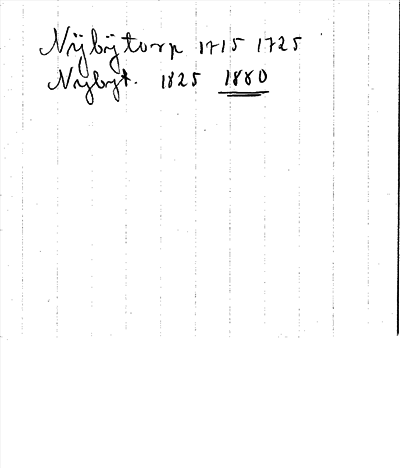 Nÿbÿtorp 1715 1725
Nybyt. 1825 1880